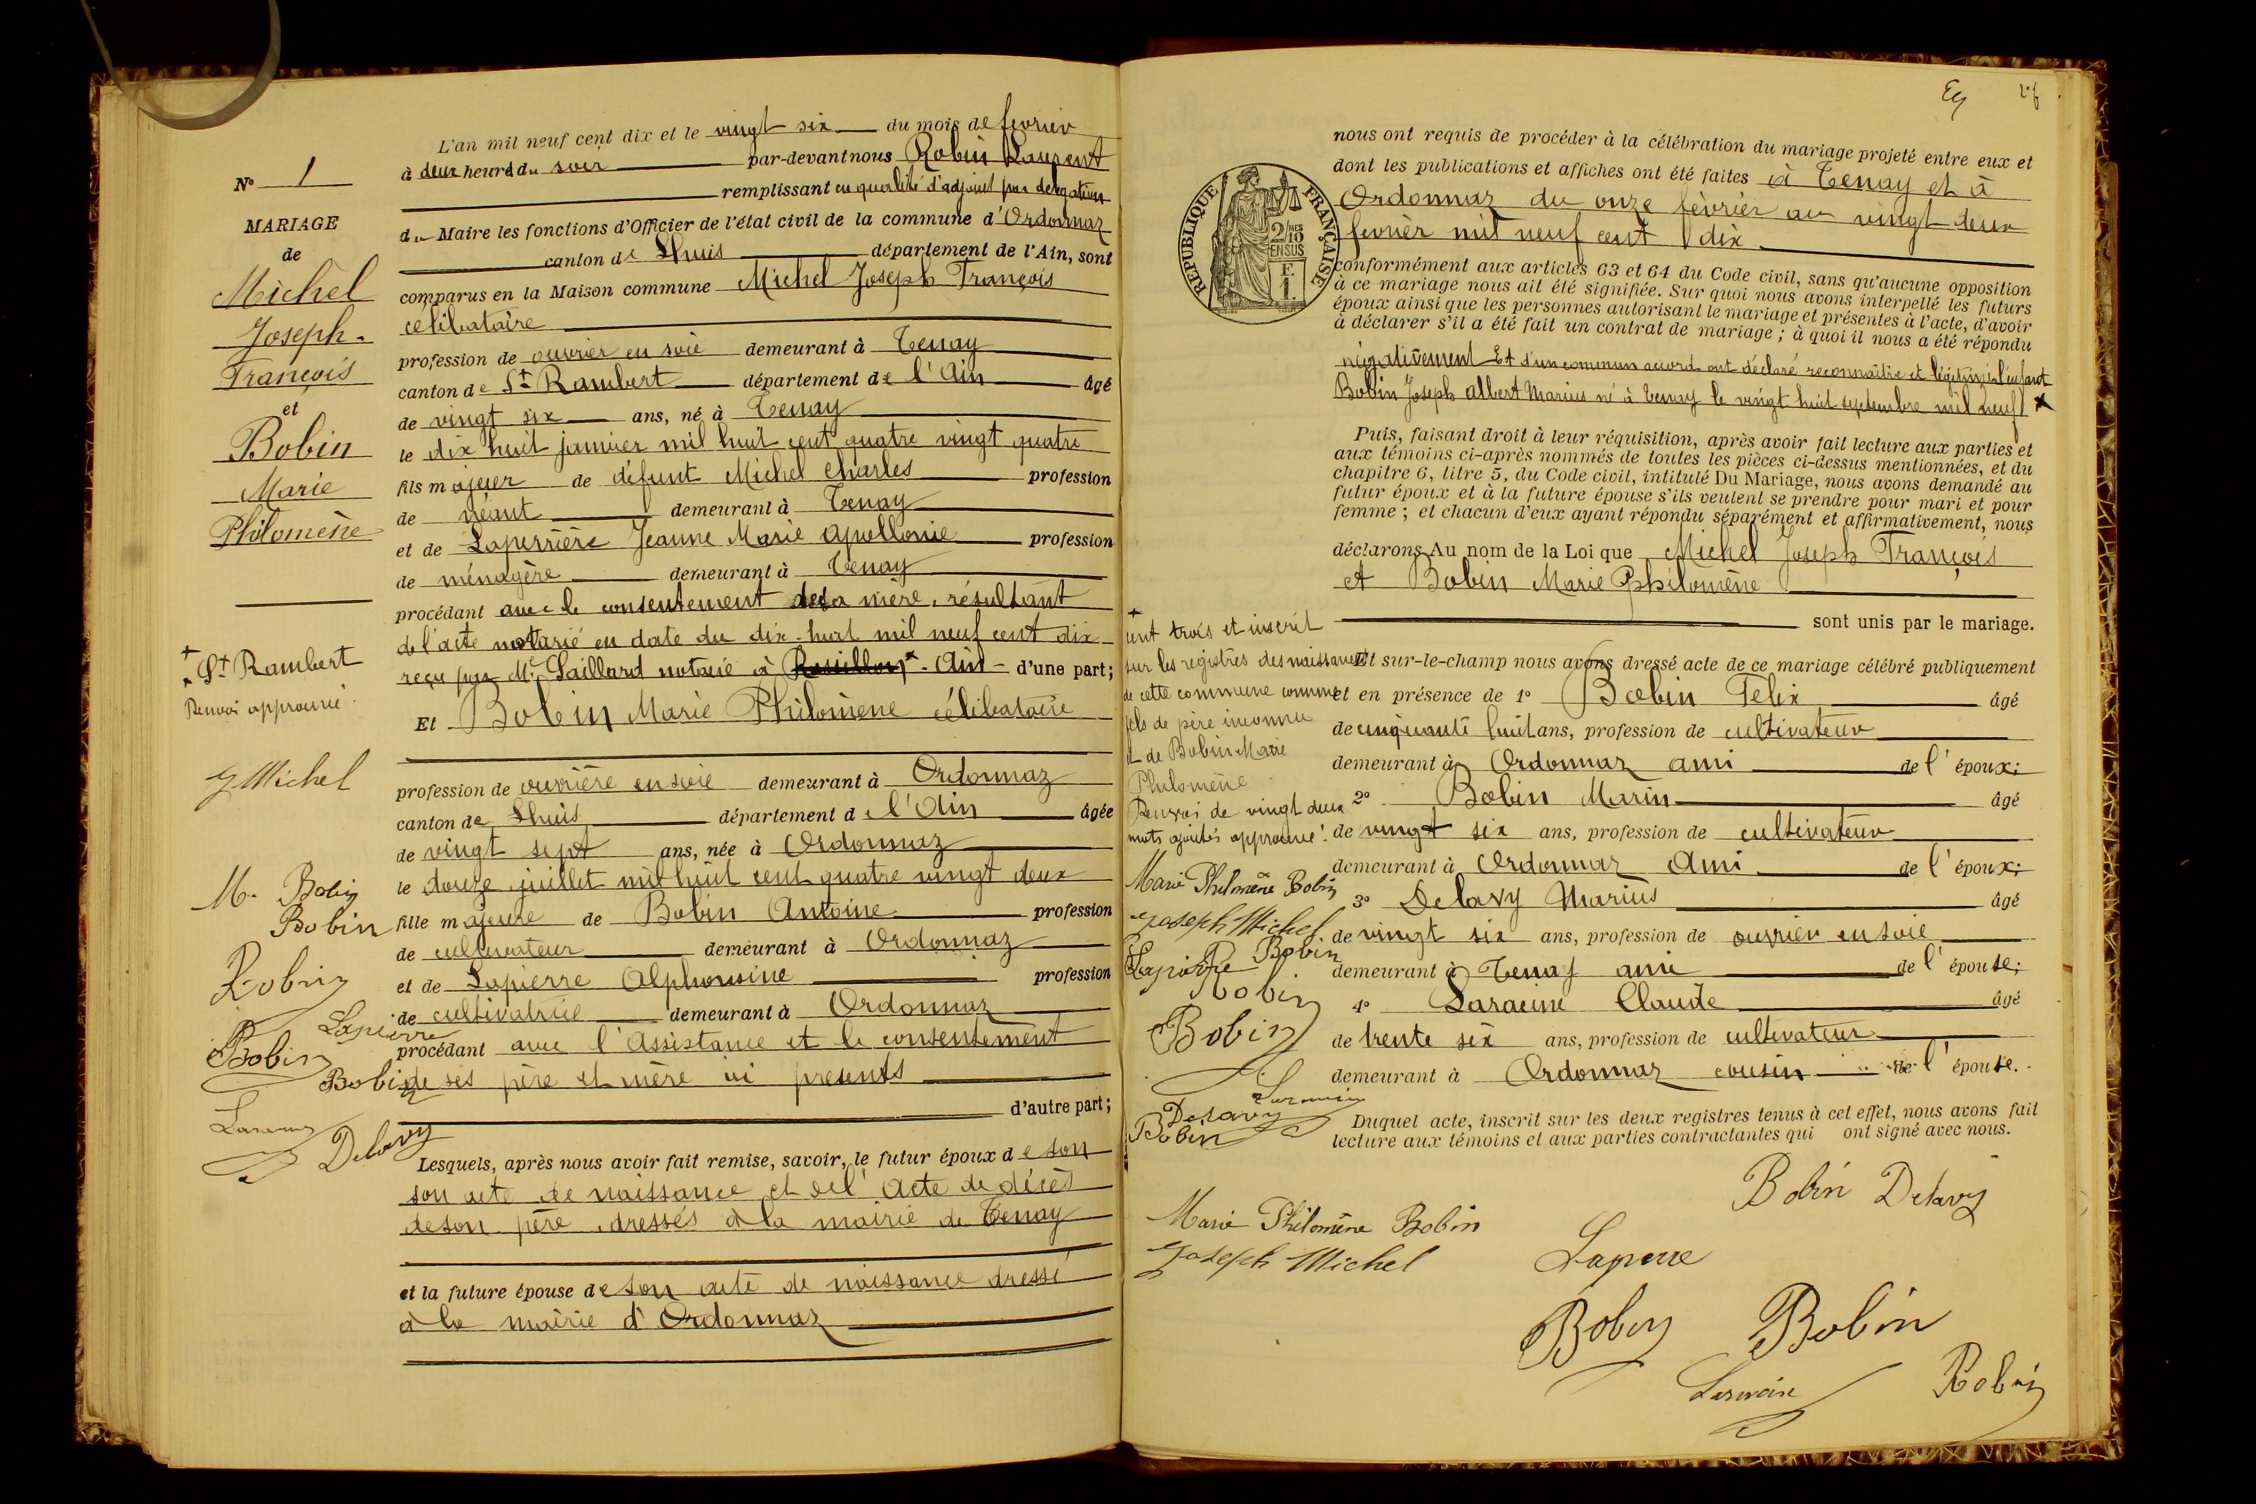 N° 1
MARIAGE
de
Michel
Joseph
François
et
Bobin
Marie
Philomène
+ St Rambert
Renvoi approuvé
J Michel
M. Bobin
Bobin
Robin
Lapierre
Bobin
Bobin
Delavy
L'an mil neuf cent dix et le vingt six du mois de fevrier
à deux heures du soir par-devant nous Robin Laurent
remplissant en qualité d'adjoint par délégation
du Maire les fonctions d'Officier de l'état civil de la commune d'Ordonnaz
canton de Lhuis département de l'Ain, sont
comparus en la Maison commune Michel Joseph François
célibataire
profession de ouvrier en soie demeurant à Tenay
canton de St Rambert département de l'Ain âgé
de vingt six ans, né à Tenay
le dix huit janvier mil huit cent quatre vingt quatre
fils majeur de défunt Michel Charles profession
de néant demeurant à Tenay
et de Laperrière Jeanne Marie Apollonie profession
de ménagère demeurant à Tenay
procédant avec le consentement de sa mère, résultant
de l'acte notarié en date du dix-huit mil neuf cent dix
reçu par Me Saillard notaire à Rossillon + - Ain - d'une part;
Et Bobin Marie Philomène célibataire
profession de ouvrière en soie demeurant à Ordonnaz
canton de Lhuis département de l'Ain âgée
de vingt sept ans, née à Ordonnaz
le douze juillet mil huit cent quatre vingt deux
fille majeure de Bobin Antoine profession
de cultivateur demeurant à Ordonnaz
et de Lapierre Alphonsine profession
de cultivatrice demeurant à Ordonnaz
procédant avec l'Assistance et le consentement
de ses père et mère ici presents
d'autre part;
Lesquels, après nous avoir fait remise, savoir, le futur époux de son
son acte de naissance et de l'Acte de décès
de son père, dressés à la mairie de Tenay
et la future épouse de son acte de naissance dressé
à la mairie d'Ordonnaz
RÉPUBLIQUE FRANÇAISE
2/10 EN SUS
F.
1.
nous ont requis de procéder à la célébration du mariage projeté entre eux et
dont les publications et affiches ont été faites à Tenay et à
Ordonnaz du onze fevrier au vingt deux
fevrier mil neuf cent dix
conformément aux articles 63 et 64 du Code civil, sans qu'aucune opposition
à ce mariage nous ait été signifiée. Sur quoi nous avons interpellé les futurs
époux ainsi que les personnes autorisant le mariage et présentes à l'acte, d'avoir
à déclarer s'il a été fait un contrat de mariage; à quoi il nous a été répondu
négativement Et d'un commun accord ont déclaré reconnaître et légitimer l'enfant
Bobin Joseph Albert Marius né à Tenay le vingt huit septembre mil neuf +
Puis, faisant droit à leur réquisition, après avoir fait lecture aux parties et
aux témoins ci-après nommés de toutes les pièces ci-dessus mentionnées, et du
chapitre 6, titre 5, du Code civil, intitulé Du Mariage, nous avons demandé au
futur époux et à la future épouse s'ils veulent se prendre pour mari et pour
femme; et chacun d'eux ayant répondu séparément et affirmativement, nous
déclarons Au nom de la Loi que Michel Joseph François
et Bobin Marie Philomène
sont unis par le mariage.
Et sur-le-champ nous avons dressé acte de ce mariage célébré publiquement
et en présence de 1° Bobin Felix âgé
de cinquante huit ans, profession de cultivateur
demeurant à Ordonnaz ami de l'époux;
2° Bobin Marin âgé
de vingt six ans, profession de cultivateur
demeurant à Ordonnaz Ami de l'époux;
3° Delavy Marius âgé
de vingt six ans, profession de ouvrier en soie
demeurant à Tenay ami de l'épouse;
4° Saracine Claude âgé
de trente six ans, profession de cultivateur
demeurant à Ordonnaz cousin de l'épouse.
Duquel acte, inscrit sur les deux registres tenus à cet effet, nous avons fait
lecture aux témoins et aux parties contractantes qui ont signé avec nous.
+
cent trois et inscrit
sur les registres des naissances
de cette commune comme
fils de père inconnu
et de Bobin Marie
Philomène
Renvoi de vingt deux
mots ajoutés approuvé.
Marie Philomène Bobin
Joseph Michel
Bobin
Lapierre
Robin
Bobin
Delavy
Bobin
Bobin Delavy
Marie Philomène Bobin
Joseph Michel
Lapierre
Bobin
Bobin
Robin